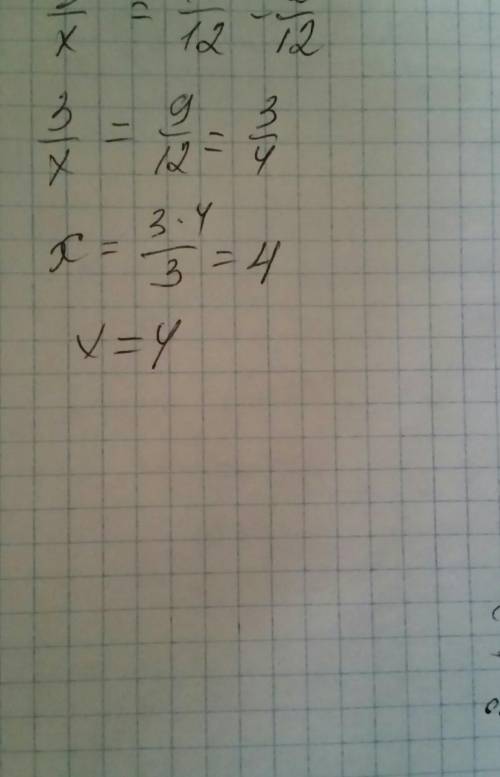 /x = /12 - /12
3/x = 9/12 = 3/4
x = 3·4/3 = 4
x = 4